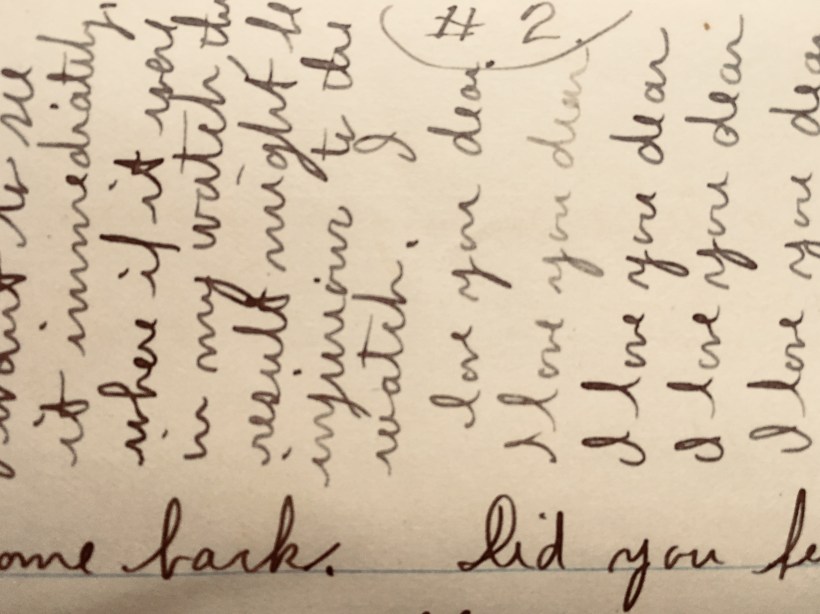 # 2
want to see
it immediately,
where if it were
in my watch the
result might be
injurious to the
watch. I
love you dear.
I love you dear
I love you dear
I love you dear
I love you dear
ome back. Did you fe